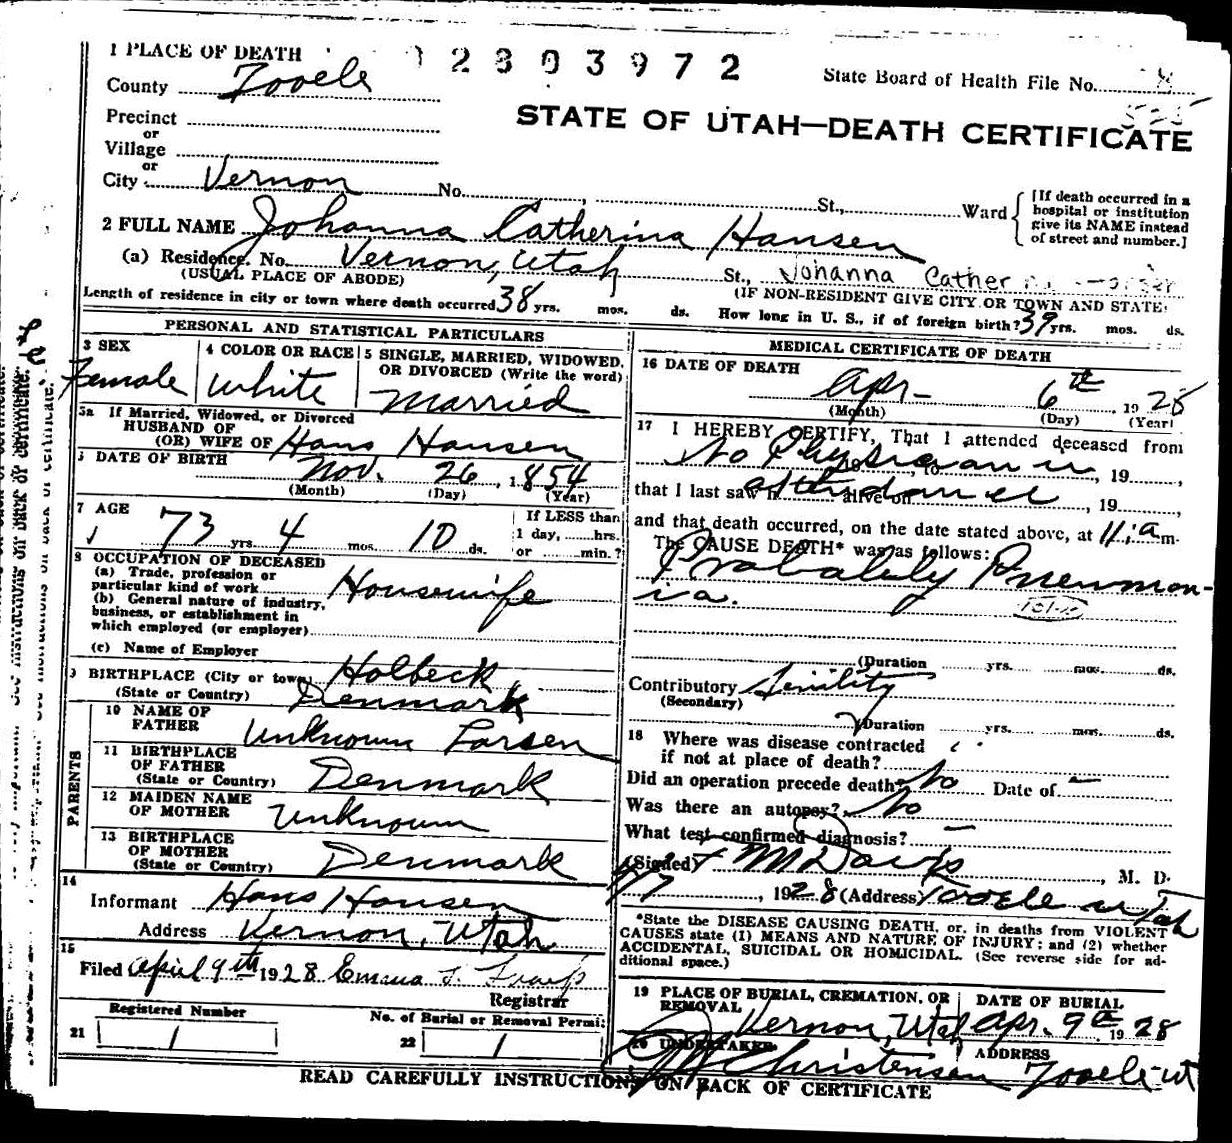 1 PLACE OF DEATH
2303972
State Board of Health File No.
County Tooele
STATE OF UTAH—DEATH CERTIFICATE
Precinct
or
Village
or
City Vernon No. St., Ward
[If death occurred in a hospital or institution give its NAME instead of street and number.]
2 FULL NAME Johanna Catherina Hansen
(a) Residence. No. Vernon, Utah St., Johanna Cather
(USUAL PLACE OF ABODE) (IF NON-RESIDENT GIVE CITY OR TOWN AND STATE)
Length of residence in city or town where death occurred 38 yrs. mos. ds. How long in U. S., if of foreign birth? 39 yrs. mos. ds.
PERSONAL AND STATISTICAL PARTICULARS
3 SEX Female
4 COLOR OR RACE White
5 SINGLE, MARRIED, WIDOWED, OR DIVORCED (Write the word) Married
5a If Married, Widowed, or Divorced
HUSBAND OF
(OR) WIFE OF Hans Hansen
DATE OF BIRTH Nov. 26, 1854
(Month) (Day) (Year)
7 AGE 73 yrs. 4 mos. 10 ds.
If LESS than 1 day, hrs. or min.?
8 OCCUPATION OF DECEASED
(a) Trade, profession or particular kind of work Housewife
(b) General nature of industry, business, or establishment in which employed (or employer)
(c) Name of Employer
9 BIRTHPLACE (City or town) Holbeck
(State or Country) Denmark
PARENTS
10 NAME OF FATHER Unknown Larsen
11 BIRTHPLACE OF FATHER (State or Country) Denmark
12 MAIDEN NAME OF MOTHER Unknown
13 BIRTHPLACE OF MOTHER (State or Country) Denmark
14
Informant Hans Hansen
Address Vernon, Utah
15
Filed April 9th 1928 Emma
Registrar
Registered Number
21 1
No. of Burial or Removal Permit
22 1
MEDICAL CERTIFICATE OF DEATH
16 DATE OF DEATH Apr- 6th, 1928
(Month) (Day) (Year)
17 I HEREBY CERTIFY, That I attended deceased from
No Physician in, 19
that I last saw h alive on attendance, 19
and that death occurred, on the date stated above, at 11 a m.
The CAUSE DEATH* was as follows:
Probably Pneumon-
ia.
(Duration yrs. mos. ds.
Contributory Senility
(Secondary)
(Duration yrs. mos. ds.
18 Where was disease contracted
if not at place of death?
Did an operation precede death? No Date of –
Was there an autopsy? No
What test confirmed diagnosis? –
(Signed) M Davis, M. D.
, 1928 (Address) Tooele Utah
*State the DISEASE CAUSING DEATH, or, in deaths from VIOLENT
CAUSES state (1) MEANS AND NATURE OF INJURY; and (2) whether
ACCIDENTAL, SUICIDAL OR HOMICIDAL. (See reverse side for ad-
ditional space.)
19 PLACE OF BURIAL, CREMATION, OR REMOVAL Vernon, Utah
DATE OF BURIAL Apr. 9th 1928
20 UNDERTAKER Christensen
ADDRESS Tooele Ut
READ CAREFULLY INSTRUCTIONS ON BACK OF CERTIFICATE